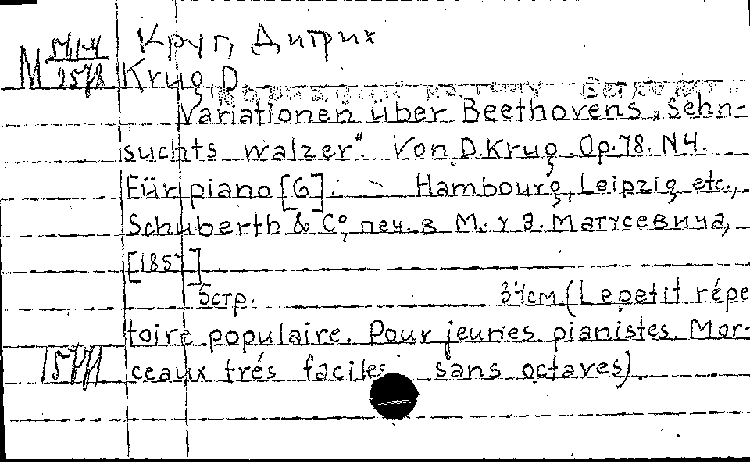 Круг, Дитрих
M
Krug D.
Variationen über Beethovens „Sehn-
suchts walzer". Von D. Krug. Op. 78. N 4.
Für piano [G]. Hambourg, Leipzig etc.,
Schuberth & Cº, печ. в М. у Э. Матусевича,
[185?]
5 стр. 34 см. (Le petit répe
toire populaire. Pour jeunes pianistes. Mor-
ceaux trés faciles sans octaves).